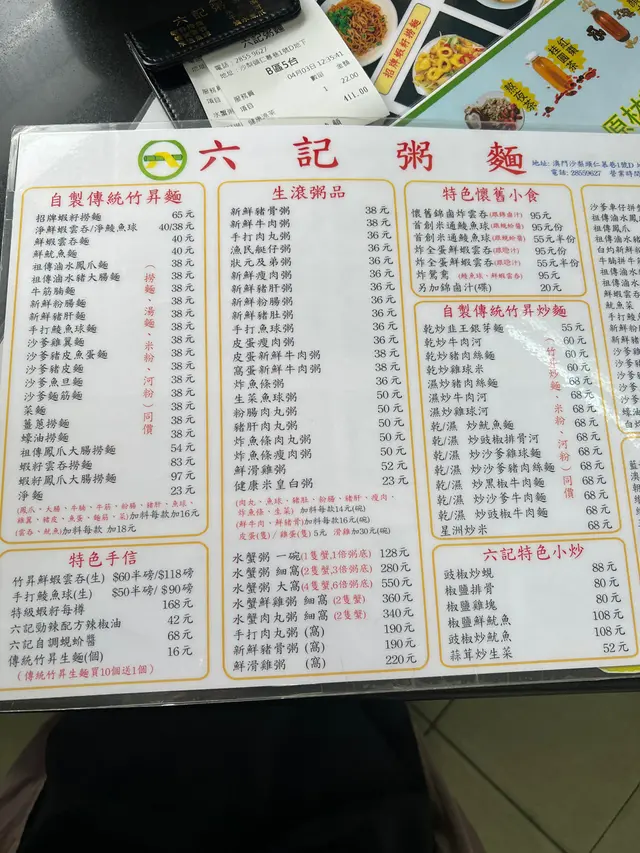 六記粥麵
電話：2855-9627
地址：沙梨頭仁慕巷1號D地下
B區5台
04月03日 12:35:41
項目 數量 金額
1 22.00
411.00
招牌蝦籽撈麵
六記粥麵
地址: 澳門沙梨頭仁慕巷1號D
電話: 28559627 營業時間
自製傳統竹昇麵
招牌蝦籽撈麵 65元
淨鮮蝦雲吞/淨鯪魚球 40/38元
鮮蝦雲吞麵 40元
鮮魷魚麵 40元
祖傳滷水鳳爪麵 38元
祖傳滷水豬大腸麵 38元
牛筋腩麵 38元
新鮮粉腸麵 38元
新鮮豬肝麵 38元
手打鯪魚球麵 38元
沙爹雞翼麵 38元
沙爹豬皮魚蛋麵 38元
沙爹豬皮麵 38元
沙爹魚旦麵 38元
沙爹麵筋麵 38元
菜麵 38元
薑蔥撈麵 38元
蠔油撈麵 38元
祖傳鳳爪大腸撈麵 54元
蝦籽雲吞撈麵 83元
蝦籽鳳爪大腸撈麵 97元
淨麵 23元
（撈麵、湯麵、米粉、河粉）同價
(鳳爪、大腸、牛腩、牛筋、粉腸、豬肝、魚球、
雞翼、豬皮、魚蛋、麵筋、菜)加料每款加16元
(雲吞、魷魚)加料每款 加18元
特色手信
竹昇鮮蝦雲吞(生) $60半磅/$118磅
手打鯪魚球(生) $50半磅/ $90磅
特級蝦籽每樽 168元
六記勁辣配方辣椒油 42元
六記自調蜆蚧醬 68元
傳統竹昇生麵(個) 16元
(傳統竹昇生麵買10個送1個)
生滾粥品
新鮮豬骨粥 38元
新鮮牛肉粥 38元
手打肉丸粥 36元
漁民艇仔粥 36元
狀元及弟粥 36元
新鮮瘦肉粥 36元
新鮮豬肝粥 36元
新鮮粉腸粥 36元
新鮮豬肚粥 36元
手打魚球粥 36元
皮蛋瘦肉粥 36元
皮蛋新鮮牛肉粥 38元
窩蛋新鮮牛肉粥 38元
炸魚條粥 36元
生菜魚球粥 50元
粉腸肉丸粥 50元
豬肝肉丸粥 50元
炸魚條肉丸粥 50元
炸魚條瘦肉粥 50元
鮮滑雞粥 52元
健康米皇白粥 23元
(肉丸、魚球、豬肚、粉腸、豬肝、瘦肉、
炸魚條、生菜) 加料每款加14元(碗)
(鮮牛肉、鮮豬骨)加料每款加16元(碗)
皮蛋(隻) / 雞蛋(隻) 5元 滑雞 加30元(碗)
水蟹粥 一碗(1隻蟹,1倍粥底) 128元
水蟹粥 細窩(2隻蟹,3倍粥底) 280元
水蟹粥 大窩(4隻蟹,6倍粥底) 550元
水蟹鮮雞粥 細窩 (2隻蟹) 360元
水蟹肉丸粥 細窩 (2隻蟹) 340元
手打肉丸粥 (窩) 190元
新鮮豬骨粥 (窩) 190元
鮮滑雞粥 (窩) 220元
特色懷舊小食
懷舊錦鹵炸雲吞(跟錦鹵汁) 95元
首創米通鯪魚球(跟蜆蚧醬) 95元份
首創米通鯪魚球(跟蜆蚧醬) 55元半份
炸全蛋鮮蝦雲吞 95元份
炸全蛋鮮蝦雲吞 55元半份
炸鴛鴦 (鯪魚球、鮮蝦雲吞) 95元
另加錦鹵汁(碟) 20元
自製傳統竹昇炒麵
乾炒韭王銀芽麵 55元
乾炒牛肉河 60元
乾炒豬肉絲麵 60元
乾炒雞球米 60元
濕炒豬肉絲麵 68元
濕炒牛肉河 68元
濕炒雞球河 68元
乾/濕 炒魷魚麵 68元
乾/濕 炒豉椒排骨河 68元
乾/濕 炒沙爹雞球麵 68元
乾/濕 炒沙爹豬肉絲麵 68元
乾/濕 炒黑椒牛肉麵 68元
乾/濕 炒沙爹牛肉麵 68元
乾/濕 炒豉椒牛肉麵 68元
星洲炒米 68元
（竹昇炒麵、米粉、河粉）同價
六記特色小炒
豉椒炒蜆 88元
椒鹽排骨 80元
椒鹽雞塊 80元
椒鹽鮮魷魚 108元
豉椒炒魷魚 108元
蒜茸炒生菜 52元